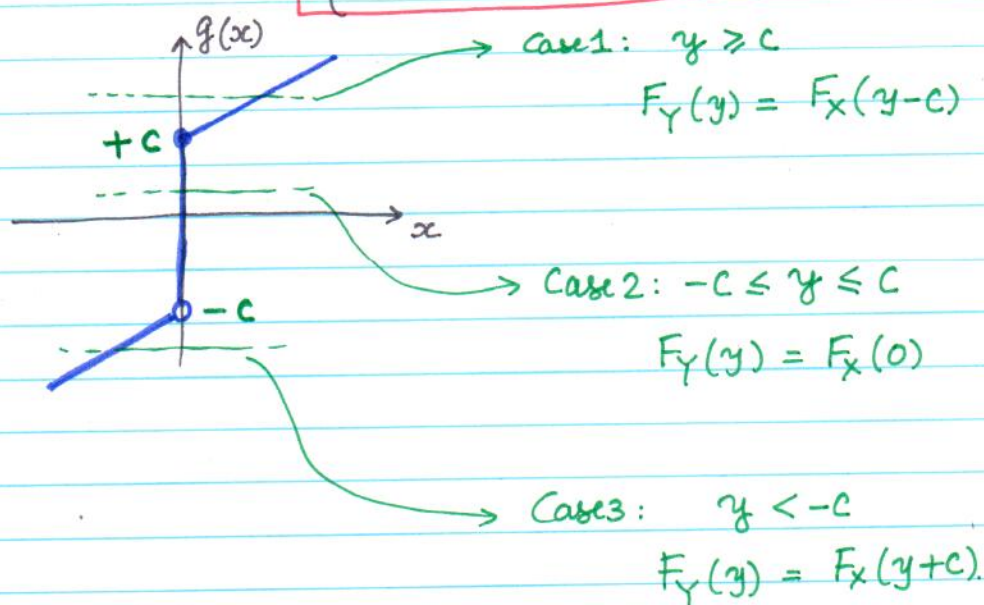 g(x)
Case1: y ≥ c
F_Y(y) = F_X(y-c)
+c
x
Case2: -c ≤ y ≤ c
-c
F_Y(y) = F_X(0)
Case3: y < -c
F_Y(y) = F_X(y+c).